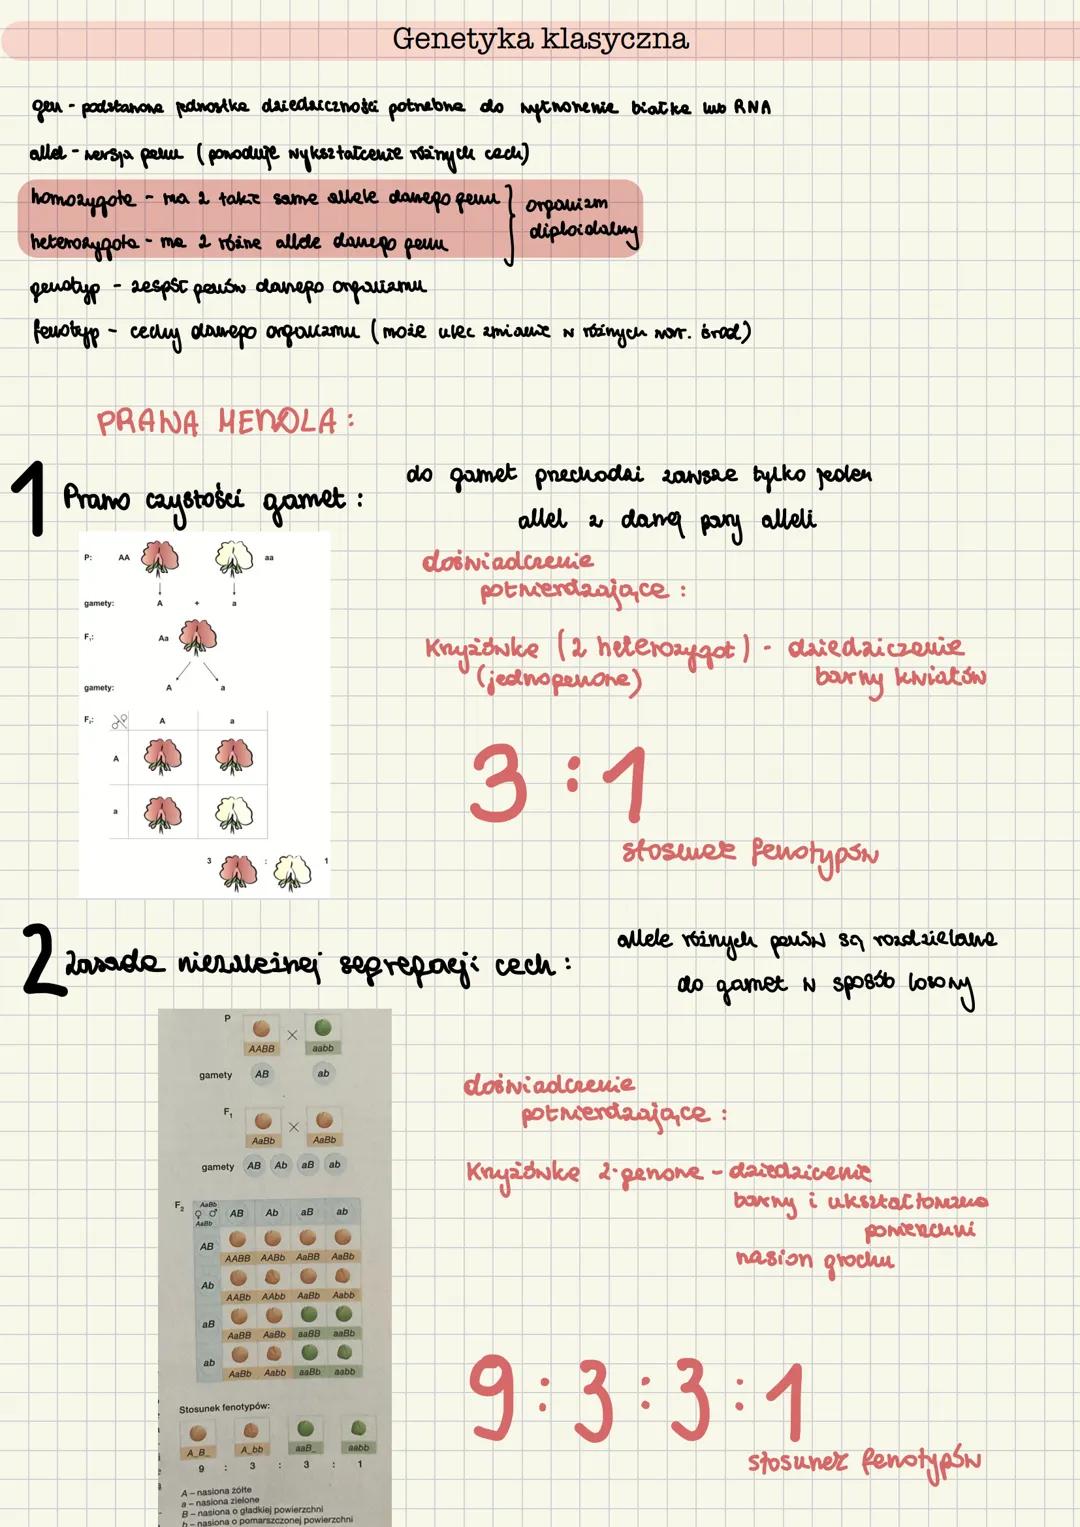 Genetyka klasyczna
gen - podstawowa jednostka dziedziczności potrzebna do wytworzenia białka lub RNA
allel - wersja genu (powoduje wykształcenie różnych cech)
homozygota - ma 2 takie same allele danego genu
heterozygota - ma 2 różne allele danego genu
organizm
diploidalny
genotyp - zespół genów danego organizmu
fenotyp - cechy danego organizmu (może ulec zmianie w różnych war. środ)
PRAWA MENDLA:
1 Prawo czystości gamet:
do gamet przechodzi zawsze tylko jeden
allel z danej pary alleli
P: AA aa
gamety: A + a
F₁: Aa
gamety: A a
F₂: A a
A
a
3 : 1
doświadczenie
potwierdzające:
Krzyżówka (2 heterozygot) - dziedziczenie
(jednogenowa) barwy kwiatów
3:1
stosunek fenotypów
2 Zasada niezależnej segregacji cech:
allele różnych genów są rozdzielane
do gamet w sposób losowy
P
AABB × aabb
gamety AB ab
F₁
AaBb × AaBb
gamety AB Ab aB ab
F₂ AaBb ♀ ♂ AaBb AB Ab aB ab
AB
AABB AABb AaBB AaBb
Ab
AABb AAbb AaBb Aabb
aB
AaBB AaBb aaBB aaBb
ab
AaBb Aabb aaBb aabb
Stosunek fenotypów:
A_B_ A_bb aaB_ aabb
9 : 3 : 3 : 1
A – nasiona żółte
a – nasiona zielone
B – nasiona o gładkiej powierzchni
b – nasiona o pomarszczonej powierzchni
doświadczenie
potwierdzające:
Krzyżówka 2-genowa - dziedziczenie
barwy i ukształtowania
powierzchni
nasion grochu
9:3:3:1
stosunek fenotypów